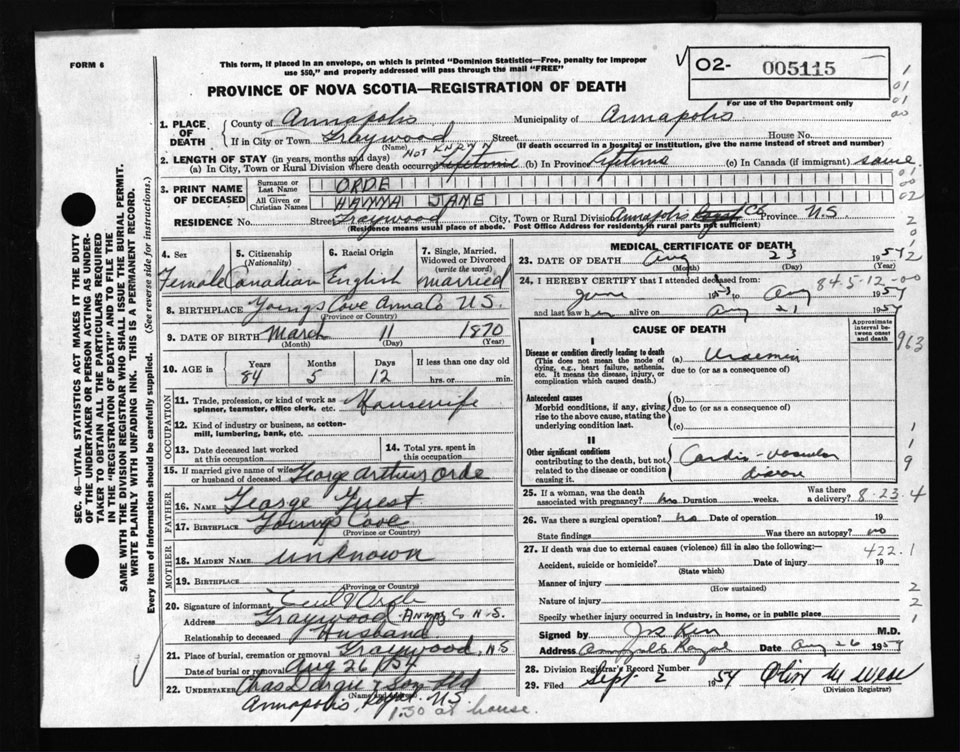 FORM 6
This form, if placed in an envelope, on which is printed "Dominion Statistics—Free, penalty for improper
use $50," and properly addressed will pass through the mail "FREE"
PROVINCE OF NOVA SCOTIA—REGISTRATION OF DEATH
O2- 005115
For use of the Department only
1. PLACE OF DEATH
County of Annapolis Municipality of Annapolis
If in City or Town Graywood Street House No.
(Name) (If death occurred in a hospital or institution, give the name instead of street and number)
2. LENGTH OF STAY (in years, months and days) NOT KNOWN
(a) In City, Town or Rural Division where death occurred Lifetime (b) In Province Lifetime (c) In Canada (if immigrant) same
3. PRINT NAME OF DECEASED
Surname or Last Name ORDE
All Given or Christian Names HANNA JANE
RESIDENCE No. Street Graywood City, Town or Rural Division Annapolis Co Province N.S
(Residence means usual place of abode. Post Office Address for residents in rural parts not sufficient)
4. Sex Female
5. Citizenship (Nationality) Canadian
6. Racial Origin English
7. Single, Married, Widowed or Divorced (write the word) married
8. BIRTHPLACE Youngs Cove Anna Co N.S.
(Province or Country)
9. DATE OF BIRTH March 11 1870
(Month) (Day) (Year)
10. AGE in Years Months Days If less than one day old
84 5 12 hrs. or min.
OCCUPATION
11. Trade, profession, or kind of work as spinner, teamster, office clerk, etc. Housewife
12. Kind of industry or business, as cotton-mill, lumbering, bank, etc.
13. Date deceased last worked at this occupation
14. Total yrs. spent in this occupation
15. If married give name of wife or husband of deceased George Arthur Orde
FATHER
16. Name George Guest
17. Birthplace Youngs Cove
MOTHER
18. MAIDEN NAME unknown
19. BIRTHPLACE
(Province or Country)
20. Signature of informant Orde
Address Graywood Anna Co N.S.
Relationship to deceased Husband
21. Place of burial, cremation or removal Graywood, N.S
Date of burial or removal Aug 26 1954
22. UNDERTAKER Chas Dargie & Son Ltd
Annapolis Royal N.S
1.30 at house.
MEDICAL CERTIFICATE OF DEATH
23. DATE OF DEATH Aug 23 1954
(Month) (Day) (Year)
24. I HEREBY CERTIFY that I attended deceased from:
June 1953 to Aug 1954
84-5-12-00
and last saw her alive on Aug 21 1954
CAUSE OF DEATH
Approximate interval between onset and death
I
Disease or condition directly leading to death
(This does not mean the mode of dying, e.g., heart failure, asthenia, etc. It means the disease, injury, or complication which caused death.)
(a) Uraemia
due to (or as a consequence of)
Antecedent causes
Morbid conditions, if any, giving rise to the above cause, stating the underlying condition last.
(b)
due to (or as a consequence of)
(c)
II
Other significant conditions
contributing to the death, but not related to the disease or condition causing it.
Cardio-vascular
disease
25. If a woman, was the death associated with pregnancy? no Duration weeks. Was there a delivery?
8-23-4
26. Was there a surgical operation? no Date of operation 19
State findings Was there an autopsy? no
27. If death was due to external causes (violence) fill in also the following:—
422.1
Accident, suicide or homicide? Date of injury 19
(State which)
Manner of injury
(How sustained)
Nature of injury
Specify whether injury occurred in industry, in home, or in public place
Signed by M.D.
Address Annapolis Royal Date Aug 26 1954
28. Division Registrar's Record Number
29. Filed Sept. 2 1954
(Division Registrar)
963
SEC. 46—VITAL STATISTICS ACT MAKES IT THE DUTY
OF THE UNDERTAKER OR PERSON ACTING AS UNDER-
TAKER TO OBTAIN ALL THE PARTICULARS REQUIRED
IN THE "REGISTRATION OF DEATH" AND TO FILE THE
SAME WITH THE DIVISION REGISTRAR WHO SHALL ISSUE THE BURIAL PERMIT.
WRITE PLAINLY WITH UNFADING INK. THIS IS A PERMANENT RECORD.
Every item of information should be carefully supplied. (See reverse side for instructions.)